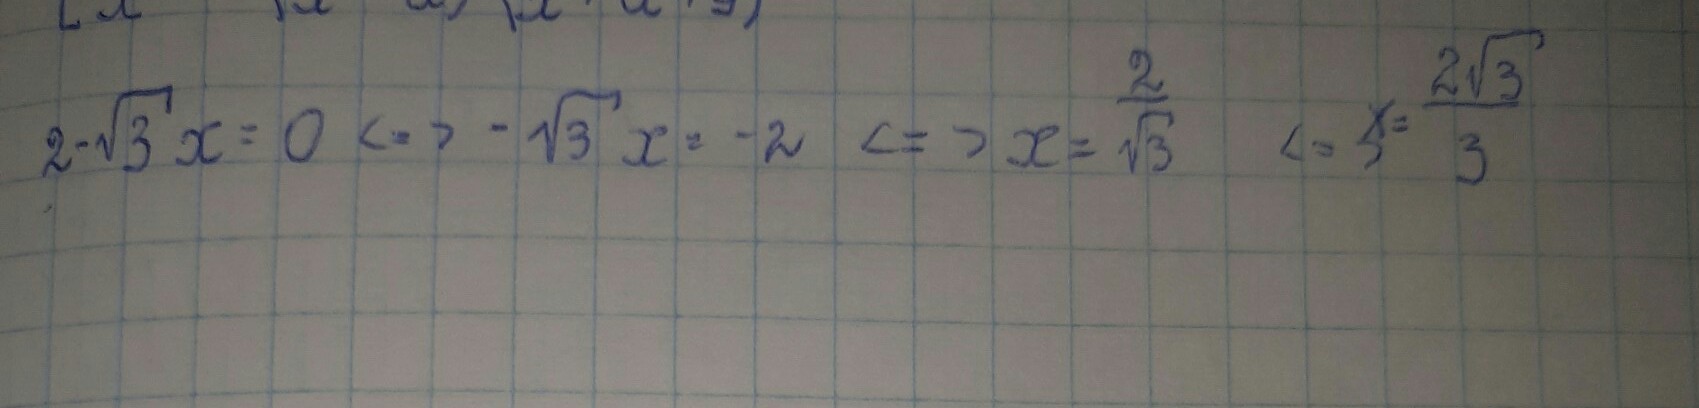 2-√3 x = 0 <=> -√3 x = -2 <=> x = 2/√3 <=> x = 2√3/3